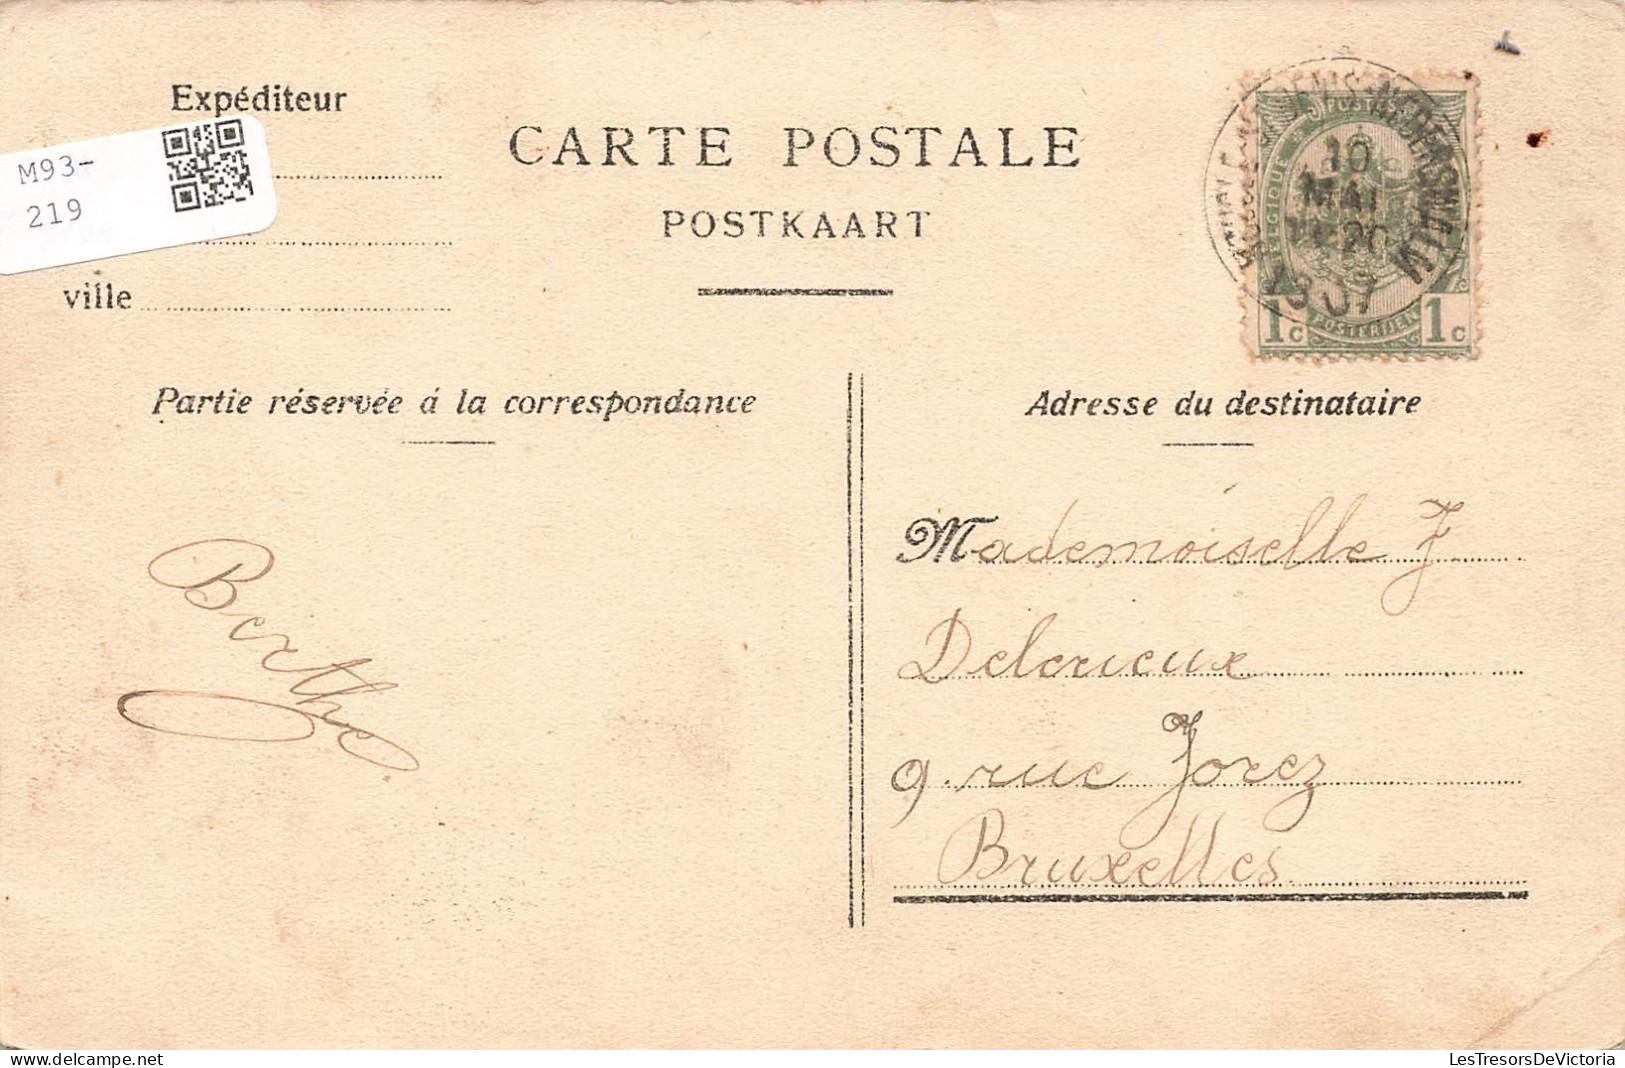 Expéditeur
M93-
219
CARTE POSTALE
POSTKAART
ville
BELGIQUE
POSTES
10
MAI
20
1907
POSTERIJEN
1c 1c
Partie réservée á la correspondance
Adresse du destinataire
Berthe
Mademoiselle J
Delerieux
9. rue Jorez
Bruxelles
LesTresorsDeVictoria